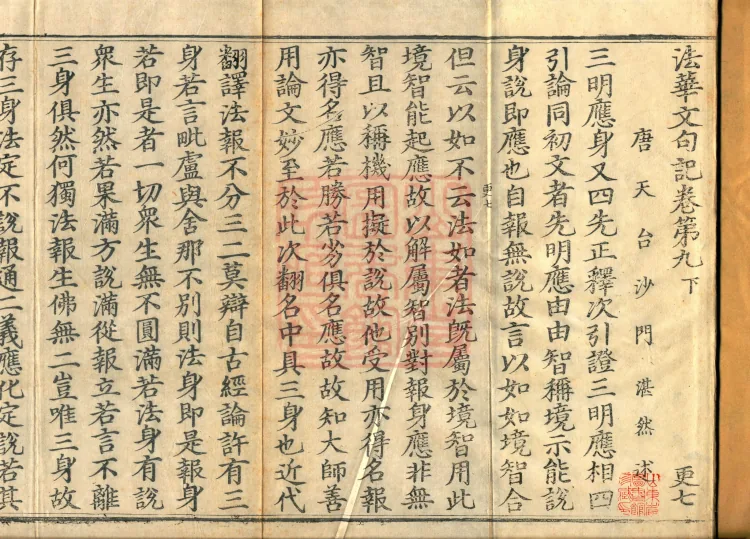 法華文句記卷第九下
更七
唐天台沙門湛然述
三明應身又四先正釋次引證三明應相四
引論同初文者先明應由由智稱境示能說
身說即應也自報無說故言以如如境智合
更七
但云以如不云法如者法既屬於境智用此
境智能起應故以解屬智別對報身應非無
智且以稱機用擬於說故他受用亦得名報
亦得名應若勝若劣俱名應故故知大師善
用論文妙至於此次翻名中具三身也近代
翻譯法報不分三二莫辯自古經論許有三
身若言毗盧與舍那不別則法身即是報身
若即是者一切衆生無不圓滿若法身有說
衆生亦然若果滿方說滿從報立若言不離
三身俱然何獨法報生佛無二豈唯三身故
存三身法定不說報通二義應化定說若其